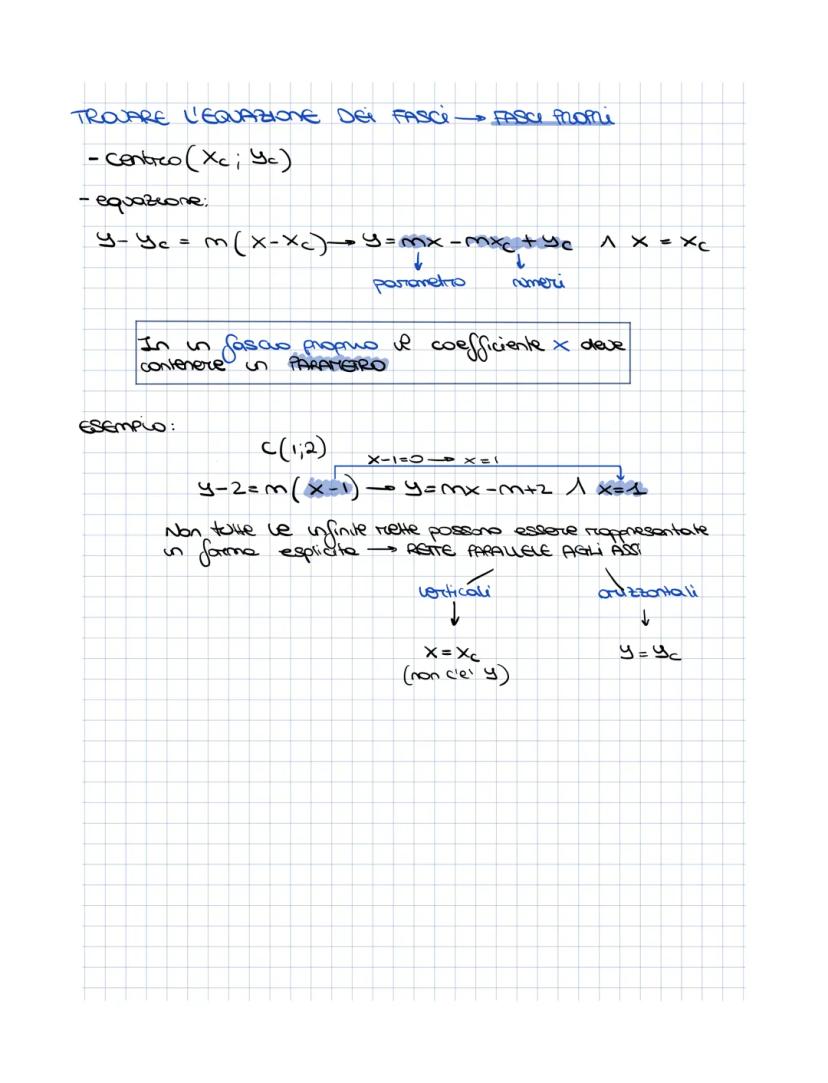 TROVARE L'EQUAZIONE DEI FASCI → FASCI PROPRI
- centro (xc ; yc)
- equazione:
y - yc = m(x-xc) → y = mx - mxc + yc ∧ x = xc
↓ ↓
parametro numeri
In un fascio proprio il coefficiente x deve
contenere un PARAMETRO
ESEMPIO:
C(1;2)
x-1=0 → x=1
y-2=m(x-1) → y=mx-m+2 ∧ x=1
Non tutte le infinite rette possono essere rappresentate
in forma esplicita → RETTE PARALLELE AGLI ASSI
verticali orizzontali
↓ ↓
x = xc y = yc
(non c'e' y)